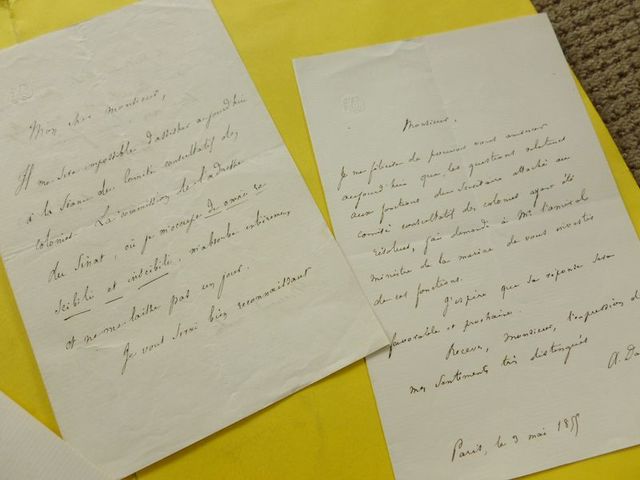 Mon cher monsieur,
Il me sera impossible d'assister aujourd'hui
à la séance du Comité consultatif des
colonies. La commission de l'adresse
du Sénat, où je m'occupe de omni re
scibili et inscibili, m'absorbe entièrement,
et ne me laisse pas un jour.
Je vous serai bien reconnaissant
Monsieur,
Je me félicite de pouvoir vous annoncer
aujourd'hui que, les questions relatives
aux fonctions du Secrétaire attaché au
comité consultatif des colonies ayant été
résolues, j'ai demandé à Mr l'amiral
ministre de la marine de vous investir
de ces fonctions.
J'espère que sa réponse sera
favorable et prochaine.
Recevez, monsieur, l'expression de
mes sentiments très distingués
Paris, le 3 mai 1855